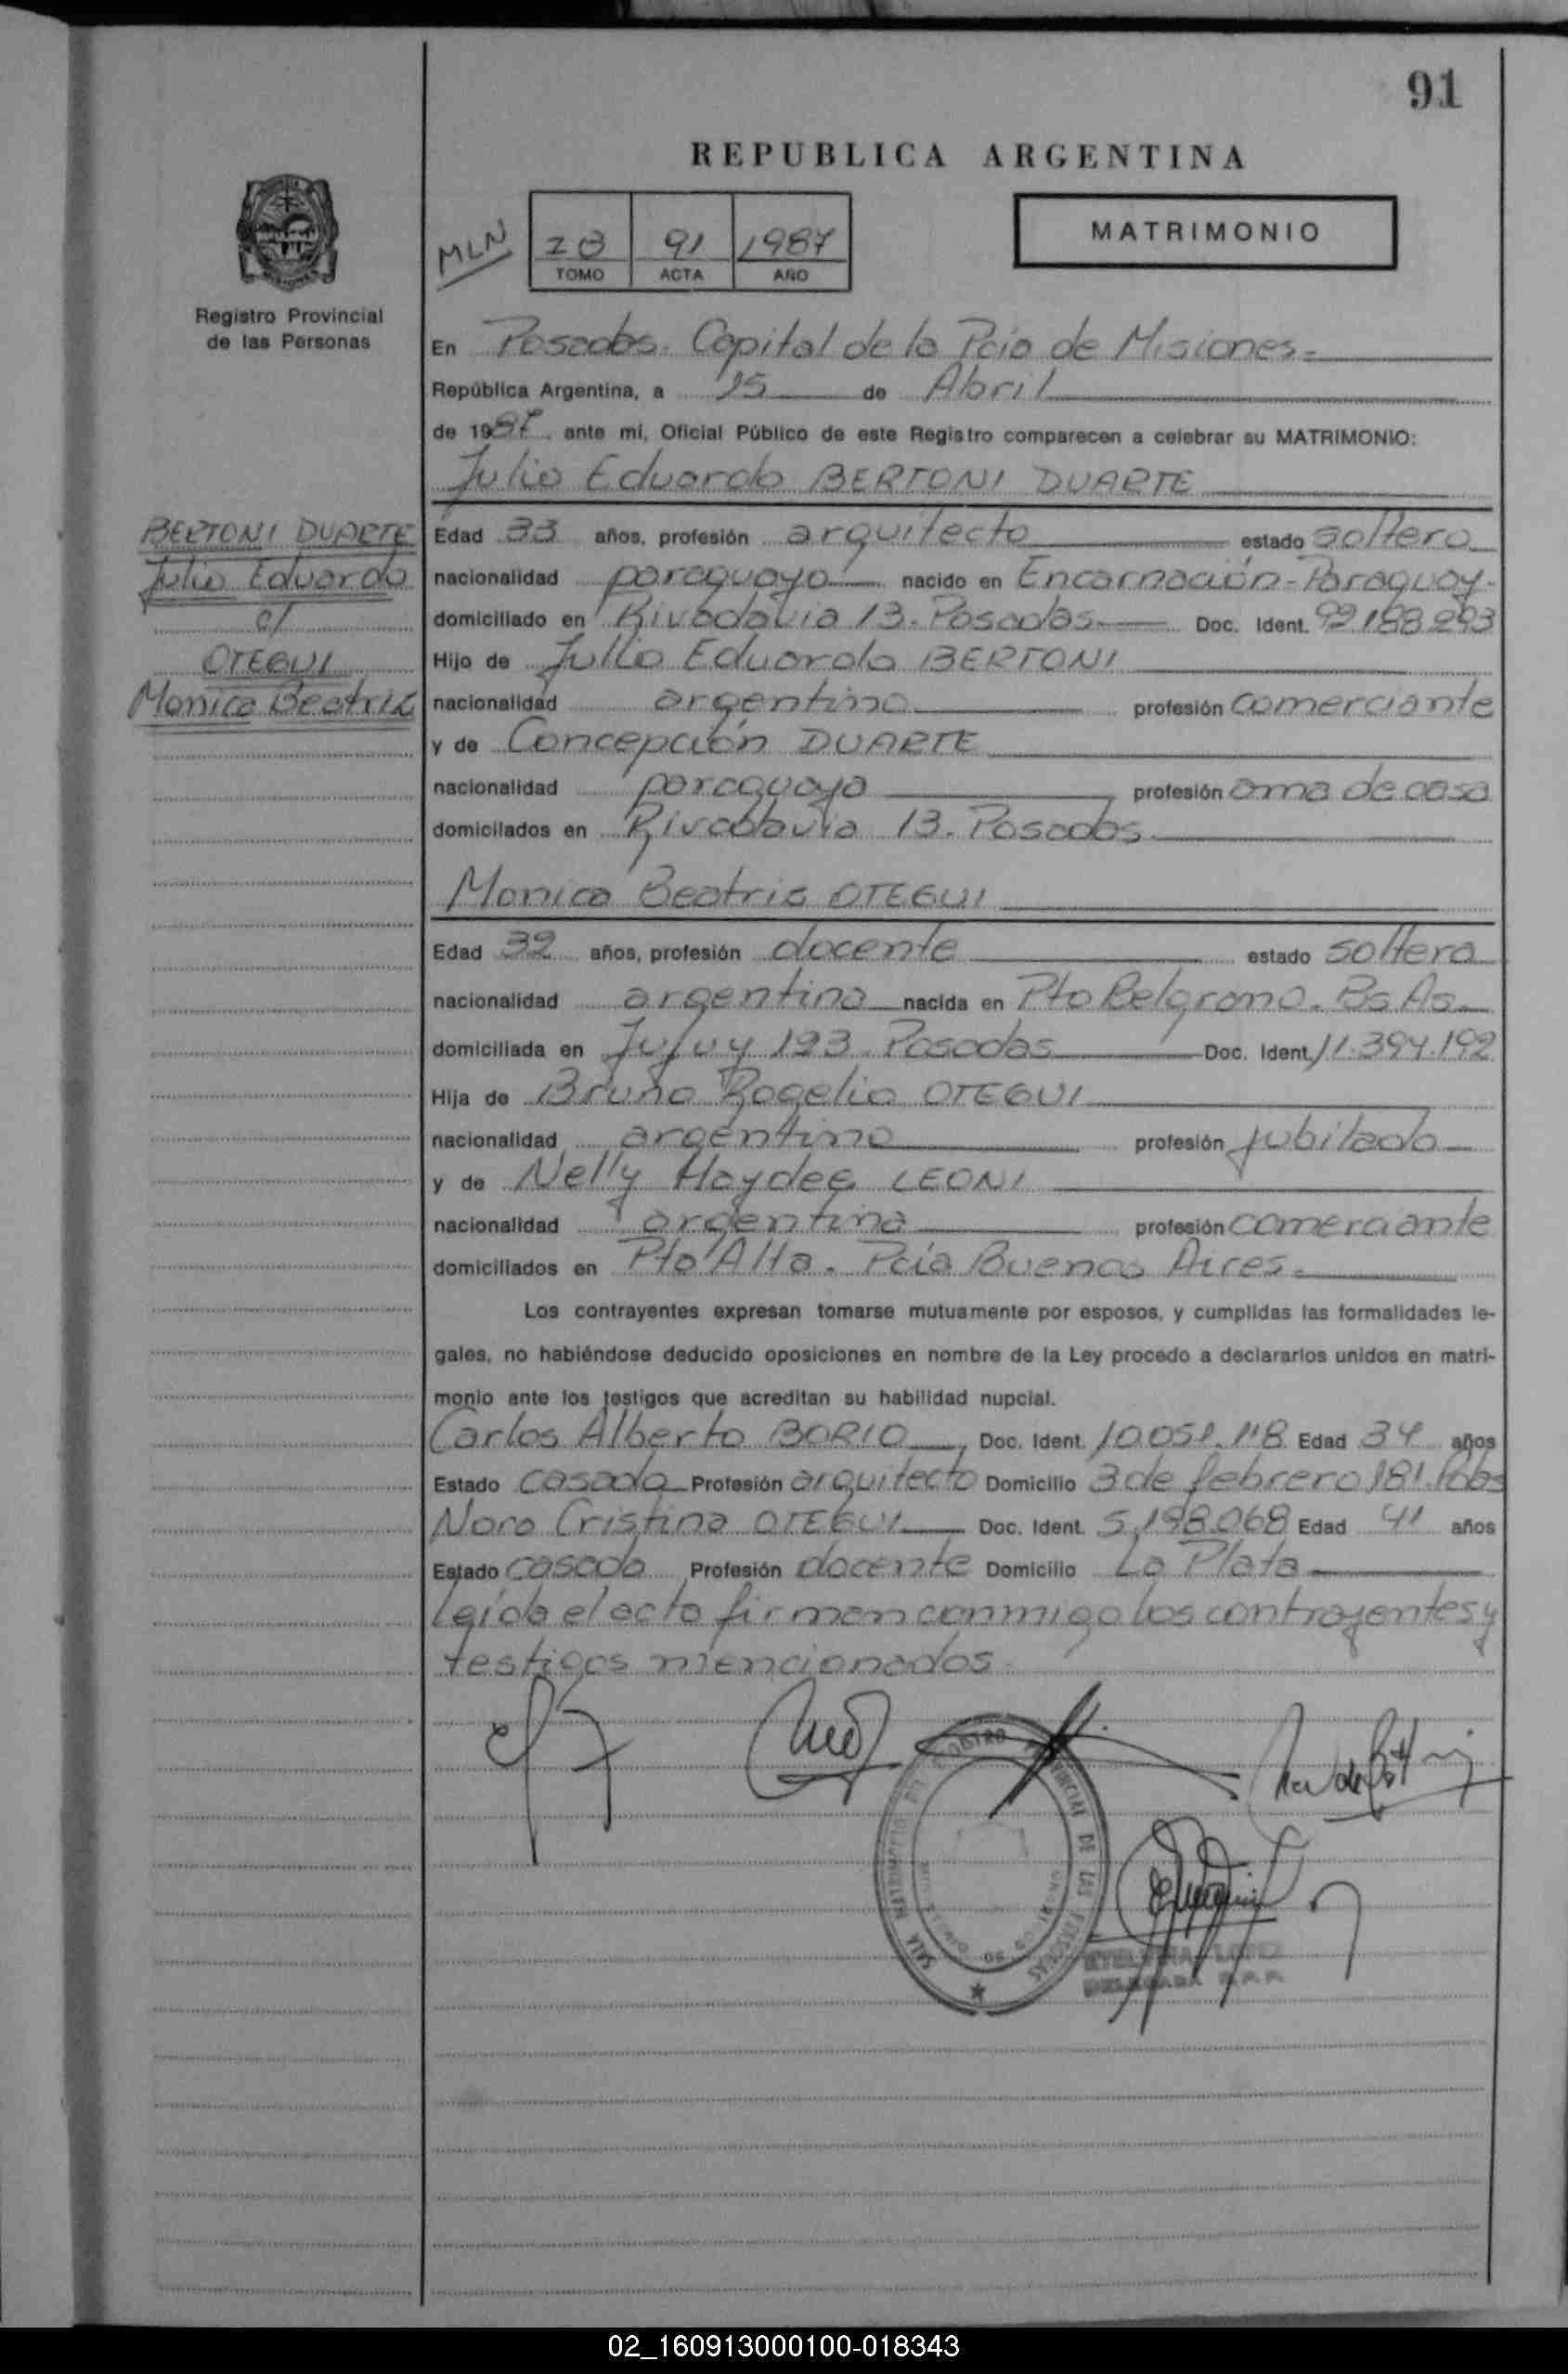 91
REPUBLICA ARGENTINA
MLN
91 1987
TOMO ACTA AÑO
MATRIMONIO
Registro Provincial
de las Personas
En Posadas. Capital de la Pcia de Misiones.
República Argentina, a 15 de Abril
de 1987, ante mi, Oficial Público de este Registro comparecen a celebrar su MATRIMONIO:
Julio Eduardo BERTONI DUARTE
BERTONI DUARTE
Julio Eduardo
c/
OTEGUI
Monica Beatriz
Edad 33 años, profesión arquitecto estado soltero
nacionalidad paraguayo nacido en Encarnación-Paraguay-
domiciliado en Rivadavia 13. Posadas Doc. Ident. 92.188.293
Hijo de Julio Eduardo BERTONI
nacionalidad argentino profesión comerciante
y de Concepción DUARTE
nacionalidad paraguaya profesión ama de casa
domicilados en Rivadavia 13. Posadas
Monica Beatris OTEGUI
Edad 32 años, profesión docente estado soltera
nacionalidad argentina nacida en Pto Belgrano. Bs As
domiciliada en Jujuy 193. Posadas Doc. Ident. 11.394.192
Hija de Bruno Rogelio OTEGUI
nacionalidad argentino profesión jubilado
y de Nelly Haydee LEONI
nacionalidad argentina profesión comerciante
domiciliados en Pto Alta. Pcia Buenos Aires.
Los contrayentes expresan tomarse mutuamente por esposos, y cumplidas las formalidades le-
gales, no habiéndose deducido oposiciones en nombre de la Ley procedo a declararlos unidos en matri-
monio ante los testigos que acreditan su habilidad nupcial.
Carlos Alberto BORIO, Doc. Ident. 10.051.118 Edad 34 años
Estado casado Profesión arquitecto Domicilio 3 de febrero 181. Pdas
Nora Cristina OTEGUI Doc. Ident. 5.198.068 Edad 41 años
Estado casada Profesión docente Domicilio La Plata
Leída el acta firman conmigo los contrayentes y
testigos mencionados.
SALA MATRIMONIO DEL REGISTRO PROVINCIAL DE LAS PERSONAS
DELEGADA R.P.P.
02_160913000100-018343